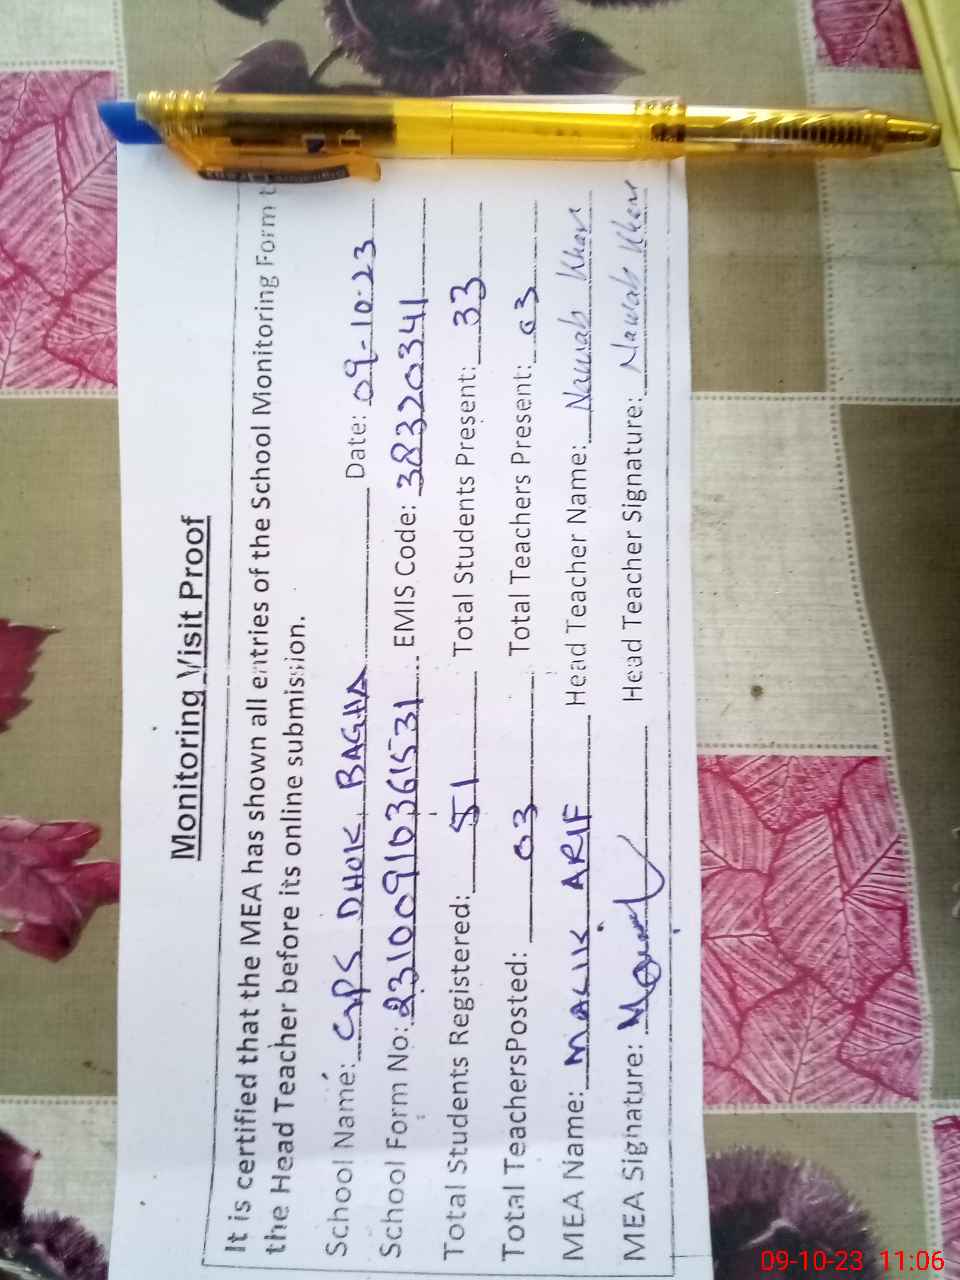 Monitoring Visit Proof
It is certified that the MEA has shown all entries of the School Monitoring Form t
the Head Teacher before its online submission.
School Name: GPS DHOK BAGHA Date: 09-10-23
School Form No: 23100910361531 EMIS Code: 38320341
Total Students Registered: 51 Total Students Present: 33
Total TeachersPosted: 03 Total Teachers Present: 03
MEA Name: MALIK ARIF Head Teacher Name: Nawab Khan
MEA Signature: Head Teacher Signature: Nawab Khan
09-10-23 11:06